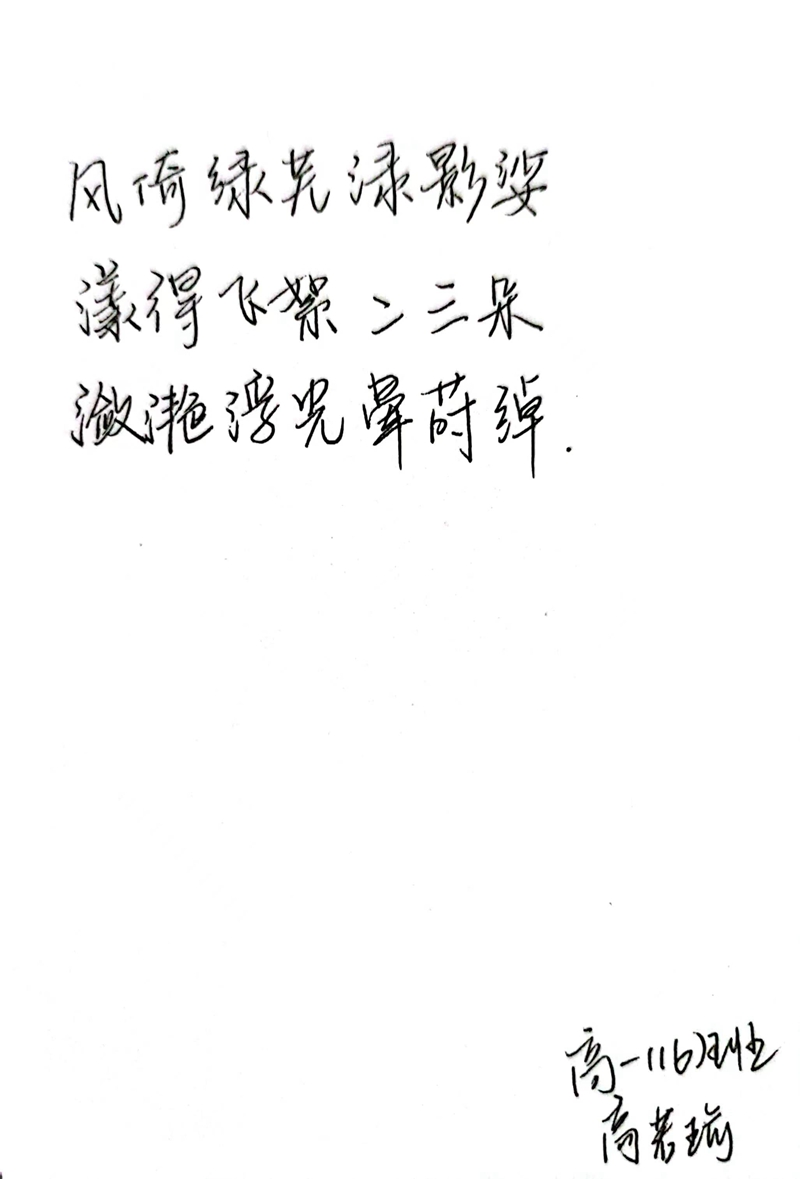 风倚绿芜渌影姿
漾得飞絮二三朵
潋滟浮光晕莳绰.
高一(16)班
高若瑜